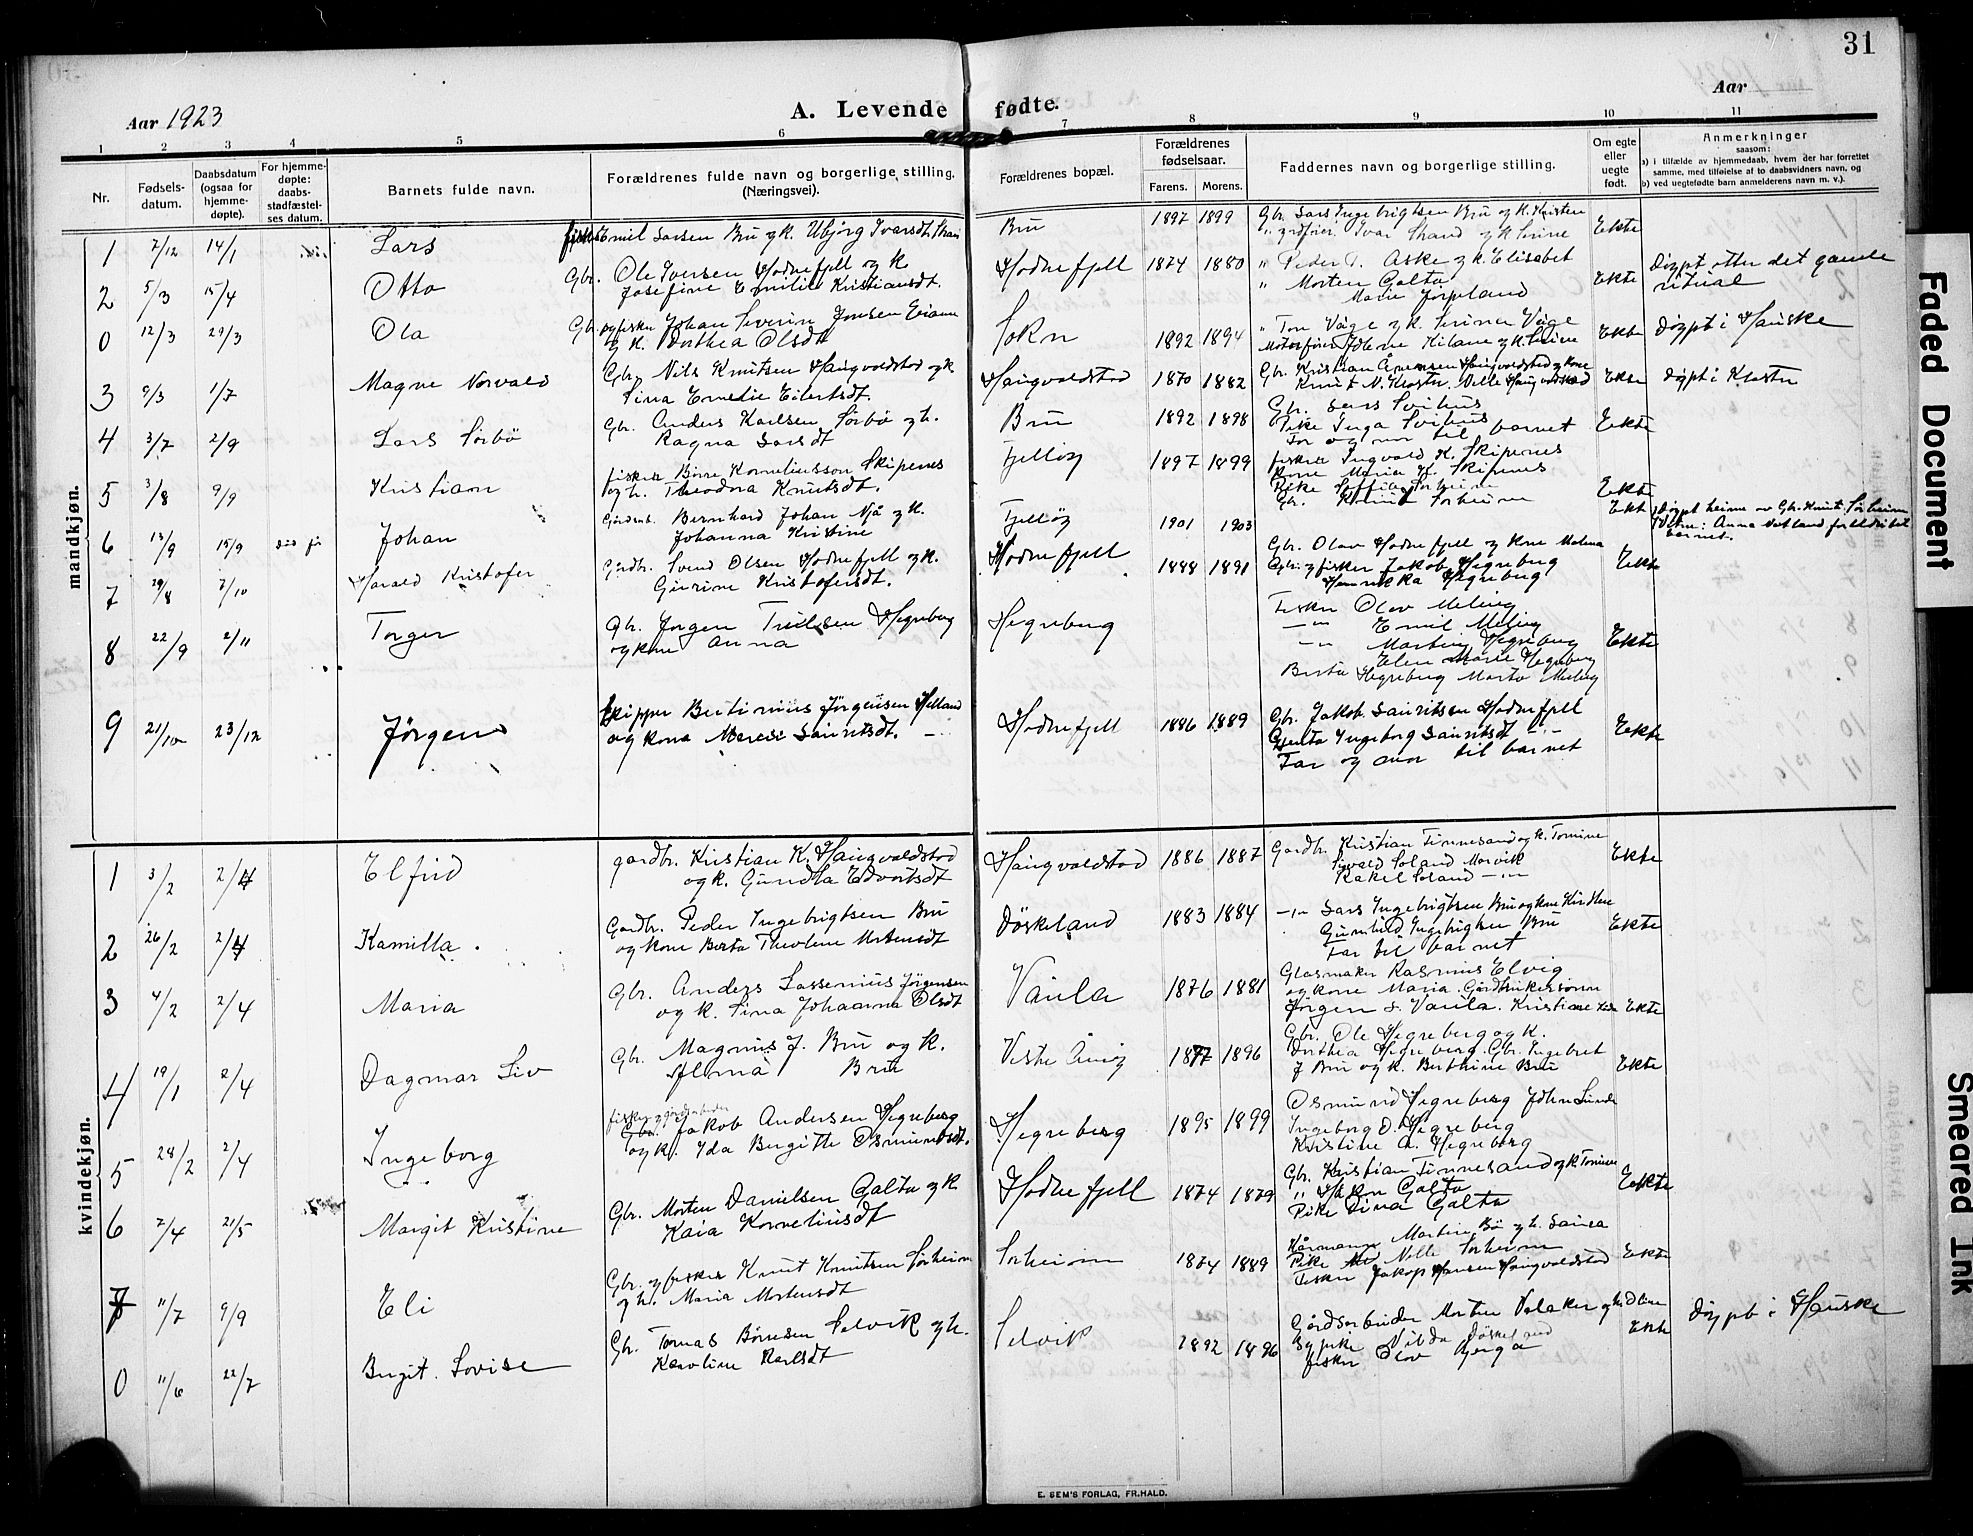 31
Aar 1923
A. Levende fødte.
Aar
1 2 3 4 5 6 7 8 9 10 11
Nr.
Fødsels-
datum.
Daabsdatum
(ogsaa for
hjemme-
døpte).
For hjemme-
døpte:
daabs-
stadfæstel-
ses datum.
Barnets fulde navn.
Forældrenes fulde navn og borgerlige stilling.
(Næringsvei).
Forældrenes bopæl.
Forældrenes
fødselsaar.
Farens. Morens.
Faddernes navn og borgerlige stilling.
Om egte
eller
uegte
født.
Anmerkninger
saasom:
a) i tilfælde av hjemmedaab, hvem der har forrettet
samme, med tilføielse af to daabsvidners navn, og
b) ved uegtefødte barn anmelderens navn m. v.).
mandkjøn.
1 7/12 14/1 Lars
fisker Emil Larsen Bru og k. Ubjörg Ivarsdt.
Bru 1897 1899
Gbr. Lars Ingebrigtsen Bru og k. Kristen
Ivar Strand og k. Serine
Ekte
2 5/3 15/4 Otto
Gbr. Ole Iversen Hodnefjell og k.
Josefine Emilie Kristiansdt.
Hodnefjell 1874 1880
" Peder T. Aske og k. Elisabet
" Morten Galta
Marie Jörpeland
Ekte
Døypt etter det gamle
ritual
0 12/3 29/3 Ola
Gbr. og fisker Johan Severin Jonsen
og k. Dorthea Olsdt
Sokn 1892 1894
" Tore Våge og k. Serina Våge
Ekte Døypt i Hauske
3 9/3 1/7 Magne Norvald
Gbr. Nils Knutsen Haugvaldstad og k
Sina Emelie Eilertsdt.
Haugvaldstad 1870 1882
Gbr. Kristian Haugvaldstad og kone
Knut N. Kloster. Nille Haugvaldstad
Ekte døypt i Kloster
4 3/7 2/9 Lars Sörbö
Gbr. Anders Karlsen Sörbö og k.
Ragna Larsdt
Bru 1892 1898
Gbr. Lars Svihus
Pike Inga Svihus
Far og mor til barnet
Ekte
5 3/8 9/9 Kristian
fisker Börre Korneliusson Skipenes
og k. Theodora Knutsdt.
Fjellöy 1897 1899
fisker Ingvald K. Skipenes
Kone Maria K. Skipenes
Pike Soffie Sörheim
Gbr. Knut Sorheim
Ekte
6 13/9 15/9 Johan
Gårdarb. Bernhard Johan Njå og k.
Johanna Kristine
Fjellöy 1901 1903
Ekte
Døypt heime av Gbr. Knut Sørheim
Vitne: Anna Natland, foreldri til
barnet.
7 29/8 7/10 Harald Kristofer
Gårdbr. Svend Olsen Hodnefjell og k.
Gurine Kristofersdt.
Hodnefjell 1888 1891
Gbr. Olav Hodnefjell og kone Malena
Gbr. og fisker Jakob Hegreberg
Henrikka Hegreberg
Ekte
8 22/9 2/11 Torger
Gbr. Jorgen Trulssen Hegreberg
og kone Anna
Hegreberg
Fisker Olav Meling
—"— Emil Meling
—"— Martin Hegreberg
Elen Marie Hegreberg
Berta Hegreberg Marta Meling
Ekte
9 21/10 23/12 Jørgen
Skipper Bertinius Jørgensen Helland
og kona Merese Lauritsdt.
Hodnefjell 1886 1889
Gbr. Jakob Lauritsen Hodnefjell
Gjenta Ingeborg Lauritsdt —"—
Far og mor til barnet
Ekte
kvindekjøn.
1 3/2 2/4 Elfrid
gardbr. Kristian K. Haugvaldstad
og k. Gundla Edvartsdt
Haugvaldstad 1886 1887
Gardbr. Kristian Finnesand og k. Tomine
Sigvald Soland Morvik
Rakel Soland —"—
Ekte
2 26/2 2/4 Kamilla.
Gardbr. Peder Ingebrigtsen Bru
og kone Berta Theolene Mortensdt
Döskeland 1883 1884
—"— Lars Ingebrigtsen Bru og kone
Gunhild Ingebrigtsen Bru
Far til barnet
Ekte
3 4/2 2/4 Maria
Gbr. Anders Lassenius Jørgensen
og k. Sina Johanna Olsdt
Vaula 1876 1881
Glasmaker Rasmus Elvig
og kone Maria. Gårdbrukersønn
Jörgen L. Vaula. Kristiane
Ekte
4 19/1 2/4 Dagmar Liv
Gbr. Magnus J. Bru og k.
Alma Bru
Vestre Åmöy 1877 1896
Gbr. Ole Hegreberg og k.
Dorthea Hegreberg. Gbr. Ingebret
J Bru og k. Berthine Bru
Ekte
5 28/2 2/4 Ingeborg
fisker og gårdarbeider
Gbr. Jakob Andersen Hegreberg
og k. Ida Birgitte Osmundsdt.
Hegreberg 1895 1899
Osmund Hegreberg John Sunde
Ingeborg O. Hegreberg
Kristine A. Hegreberg
Ekte
6 2/4 21/5 Margit Kristine
Gbr. Morten Danielsen Galta og k
Kaia Korneliusdt
Hodnefjell 1874 1879
Gbr. Kristian Finnesand og k Tomine
" Håkon Galta
Pike Sina Galta
7 11/7 9/9 Eli
Gbr. og fisker Knut Knutsen Sörheim
og k. Maria Mortensdt
Sorheim 1874 1889
Martin Bö og k. Laura
Pike Nille Sorheim
Fisker Jakop Hansen Haugvaldstad
Ekte
0 11/6 22/7 Birgit. Lovise
Gbr. Tomas Börresen Selvik og k.
Karoline Karlsdt
Selvik 1892 1896
Gårdsarbeider Morten Valaker og Hedline
Bypike Vilda Döskeland
fisker Olav Gjerga
Ekte døypt i Hauske
E. SEM'S FORLAG, FR.HALD.
Faded Document
Smeared Ink